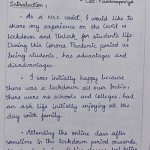 Introduction :
Cdt - Padmapriya
As a NCC cadet, I would like to
share my experience on the Covid in
Lockdown and Unlock for students life
During this Corona Pandemic period as
being students, has advantages and
disadvantages.
• I was initially happy because
there was a lockdown all over India;
there was no schools and colleges had
an ask life initially enjoying all the
day with family.
• Attending the online class after
sometime in the lockdown period onwards,